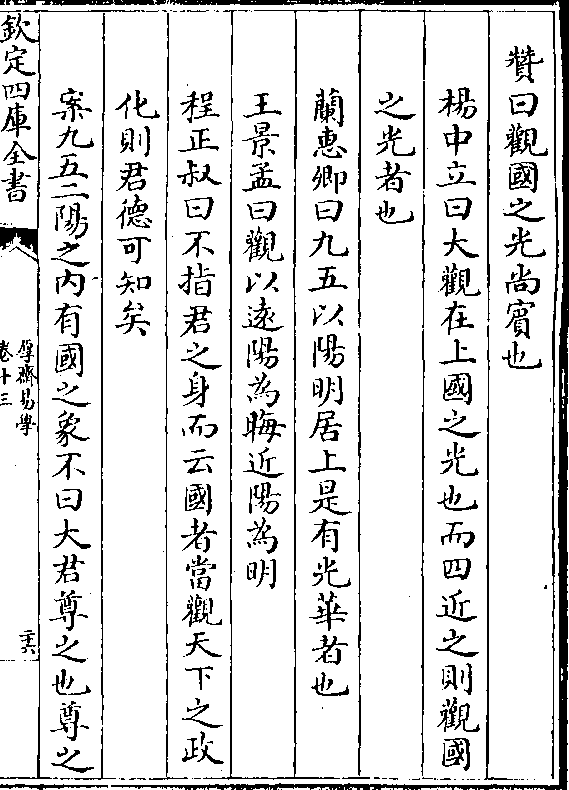 贊曰觀國之光尚賓也
楊中立曰大觀在上國之光也而四近之則觀國
之光者也
蘭惠卿曰九五以陽明居上是有光華者也
王景孟曰觀以遠陽為晦近陽為明
程正叔曰不指君之身而云國者當觀天下之政
化則君德可知矣
案九五二陽之内有國之象不曰大君尊之也尊之
欽定四庫全書
厚齋易學
卷十三